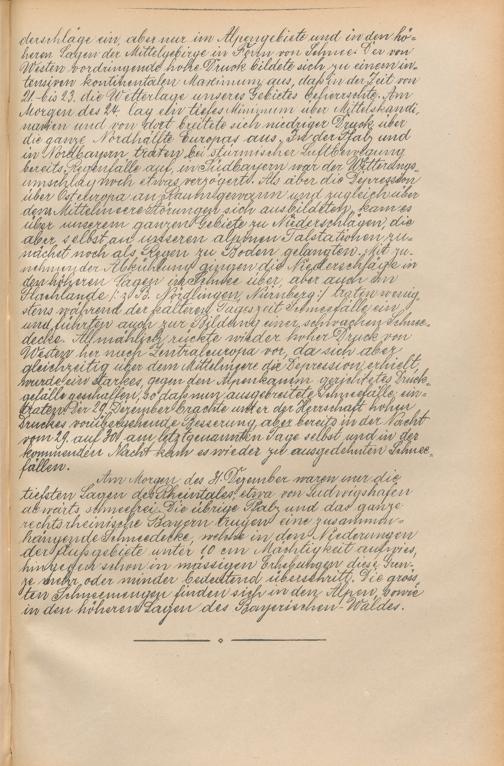 derschläge ein, aber nur im Alpengebiete und in den hö-
heren Lagen der Mittelgebirge in Form von Schnee. Der von
Westen vordringende hohe Druck bildete sich zu einem in-
tensiven kontinentalen Maximum aus, das in der Zeit von
21. bis 23. die Wetterlage unseres Gebietes beherrschte. Am
Morgen des 24. lag ein tiefes Minimum über Mittelskandi-
navien und von dort breitete sich niedriger Druck über
die ganze Nordhälfte Europas aus, In der Pfalz und
in Nordbayern traten bei stürmischer Luftbewegung
bereits Regenfälle auf, in Südbayern war der Witterungs-
umschlag noch etwas verzögert. Als aber die Depression
über Osteuropa an Raum gewann und zugleich über
dem Mittelmeere Störungen sich ausbildeten, kam es
über unserem ganzen Gebiete zu Niederschlägen, die
aber selbst an unseren alpinen Talstationen zu-
nächst noch als Regen zu Boden gelangten. Mit zu-
nehmender Abkühlung gingen die Niederschläge in
den höheren Lagen in Schnee über, aber auch im
Flachlande /: z. B. Nördlingen, Nürnberg :/ traten wenig-
stens während der kälteren Tageszeit Schneefälle ein
und führten auch zur Bildung einer schwachen Schnee-
decke. Allmählich rückte wieder hoher Druck von
Westen her nach Zentraleuropa vor, da sich aber
gleichzeitig über dem Mittelmeere die Depression erhielt,
wurde ein starkes, gegen den Alpenkamm gerichtetes Druck-
gefälle geschaffen, so daß nun ausgebreitete Schneefälle ein-
traten. Der 29. Dezember brachte unter der Herrschaft hohen
Druckes vorübergehende Besserung, aber bereits in der Nacht
vom 29. auf 30. am letztgenannten Tage selbst und in der
kommenden Nacht kam es wieder zu ausgedehnten Schnee-
fällen.
Am Morgen des 31. Dezember waren nur die
tiefsten Lagen des Rheintales, etwa von Ludwigshafen
abwärts schneefrei. Die übrige Pfalz und das ganze
rechtsrheinische Bayern trugen eine zusammen-
hängende Schneedecke, welche in den Niederungen
der Flußgebiete unter 10 cm Mächtigkeit aufwies,
hingegen schon in mässigen Erhebungen diese Gren-
ze mehr oder minder bedeutend überschritt. Die gröss-
ten Schneemengen finden sich in den Alpen, sowie
in den höheren Lagen des Bayerischen-Waldes.